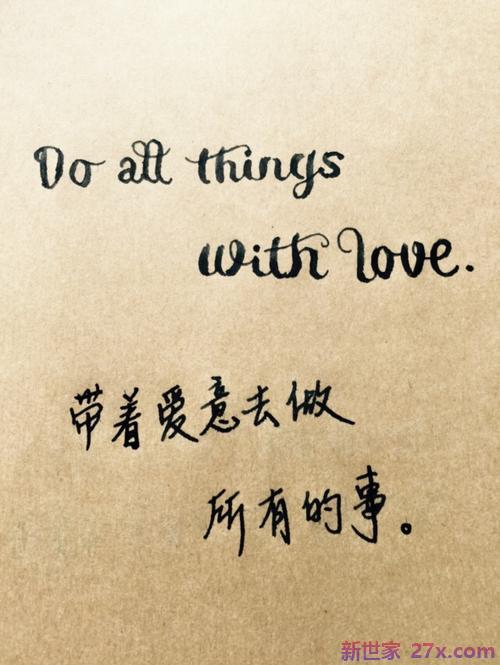 Do all things
with love.
带着爱意去做
所有的事。
新世家 27x.com